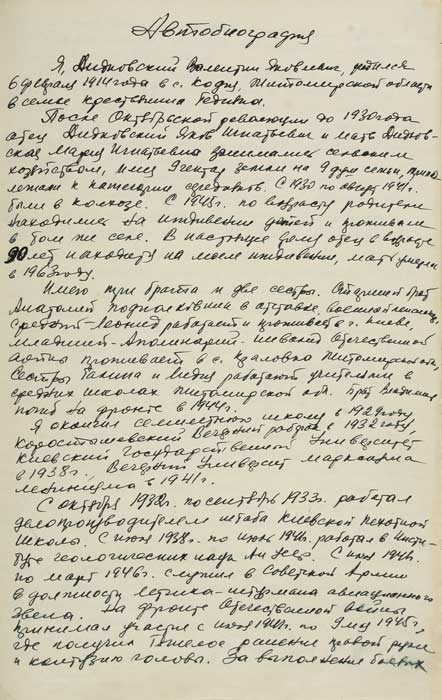 Автобиография
Я, Дидковский Валентин Яковлевич, родился
6 февраля 1914 года в с. Кодня, Житомирской области
в семье крестьянина бедняка.
После Октябрьской революции до 1930 года
отец Дидковский Яков Игнатьевич и мать Дидков-
ская Мария Игнатьевна занимались сельским
хозяйством, имея 9 гектар земли на 9 душ семьи, прина-
лежали к категории средняков. С 1930 по август 1941 г.
были в колхозе. С 1945 г. по возрасту родители
находились на иждивении детей и проживали
в том же селе. В настоящее время отец в возрасте
90 лет находится на моем иждивении, мать умерла
в 1963 году.
Имею три брата и две сестры. Старший брат
Анатолий подполковник в отставке, военный пенсионер,
средний - Леонид работает и проживает в г. Киеве,
младший - Аполинарий - Отечественной
войны проживает в с. Житомирской обл.
Сестры Галина и Лидия работают учителями в
средних школах Житомирской обл. Брат Владимир
погиб на фронте в 1944 г.
Я окончил семилетнюю школу в 1929 году,
Коростышевский Вечерний рабфак в 1932 году,
Киевский Государственный Университет
в 1938 г., Вечерний Университет Марксизма
ленинизма в 1941 г.
С октября 1932 г. по сентябрь 1933 г. работал
делопроизводителем штаба Киевской пехотной
школы. С июня 1938 г. по июнь 1941 г. работал в Инсти-
туте геологических наук АН УССР. С июня 1941 г.
по март 1946 г. служил в Советской Армии
в должности летчика-штурмана авиационного
звена. На фронте Отечественной войны
принимал участие с июня 1941 г. по 9 мая 1945 г.,
где получил тяжелое ранение правой руки
и контузию головы. За выполнение боевых